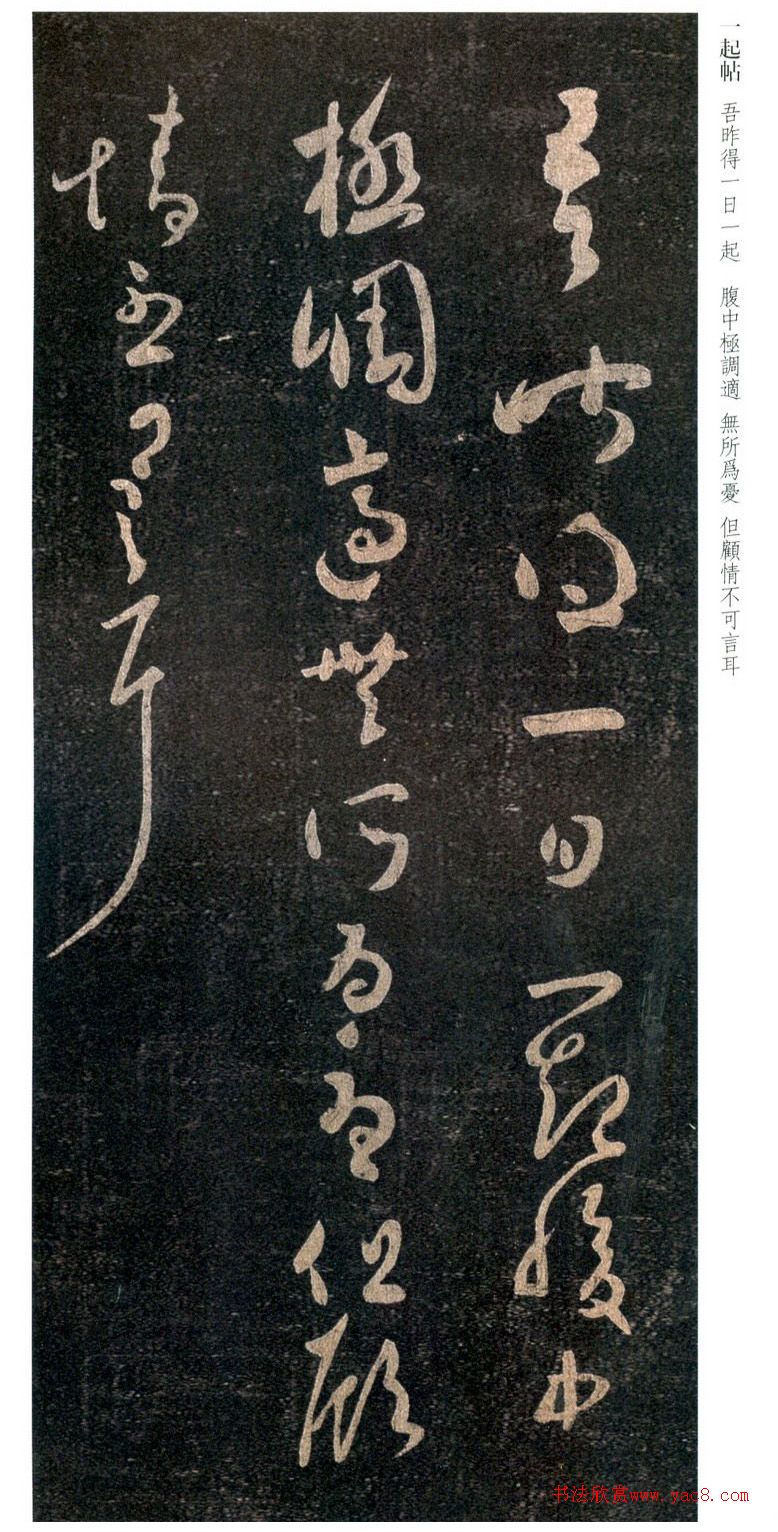 一起帖 吾昨得一日一起 腹中極調適 無所爲憂 但顧情不可言耳
吾昨得一日一起腹中
極調適無所爲憂但顧
情不可言耳
书法欣赏www.yac8.com